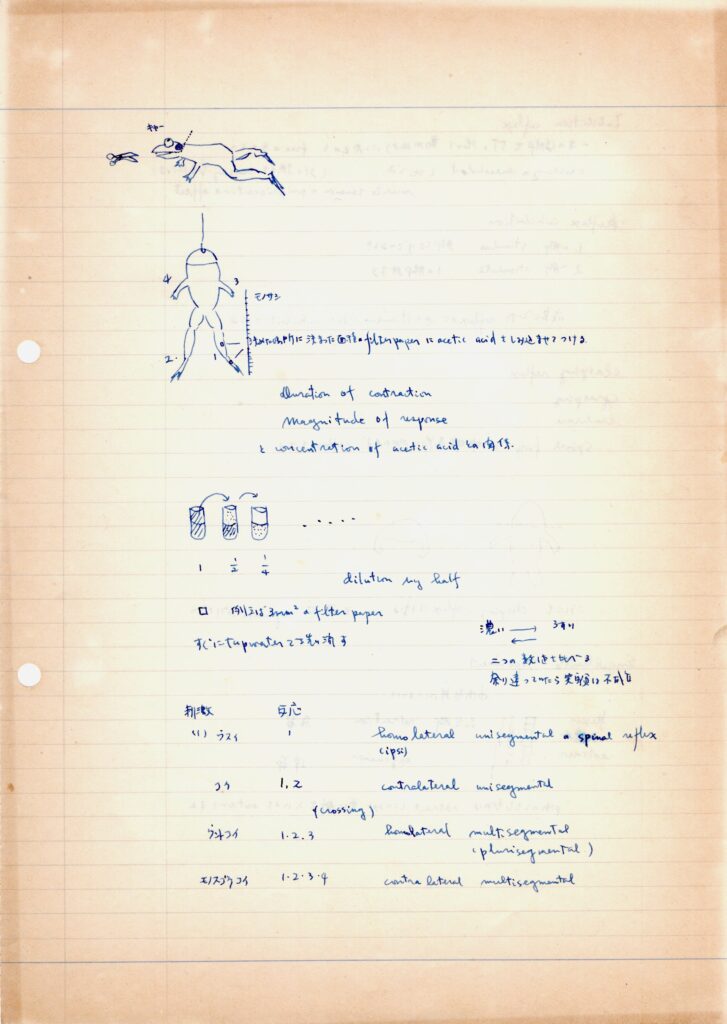 キャー
4 3
モノサシ
決めた場所に決まった面積のfilter paper に acetic acid をしみ込ませてつける.
2. 1
duration of contraction
magnitude of response
と concentration of acetic acid との関係.
.....
1 1/2 1/4
dilution by half
□ 例えば 3mm² の filter paper
すぐに tapwater で 洗い流す
濃い → うすい
←
二つの 数値を比べる
余り違っていたら 実験は不成功
刺激 反応
(1) ウスイ 1 homolateral unisegmental a spinal reflex
(ipsi)
コイ 1, 2 contralateral unisegmental
(crossing)
ウントコイ 1.2.3 homolateral multisegmental
(plurisegmental)
モノスゴクコイ 1.2.3.4 contralateral multisegmental